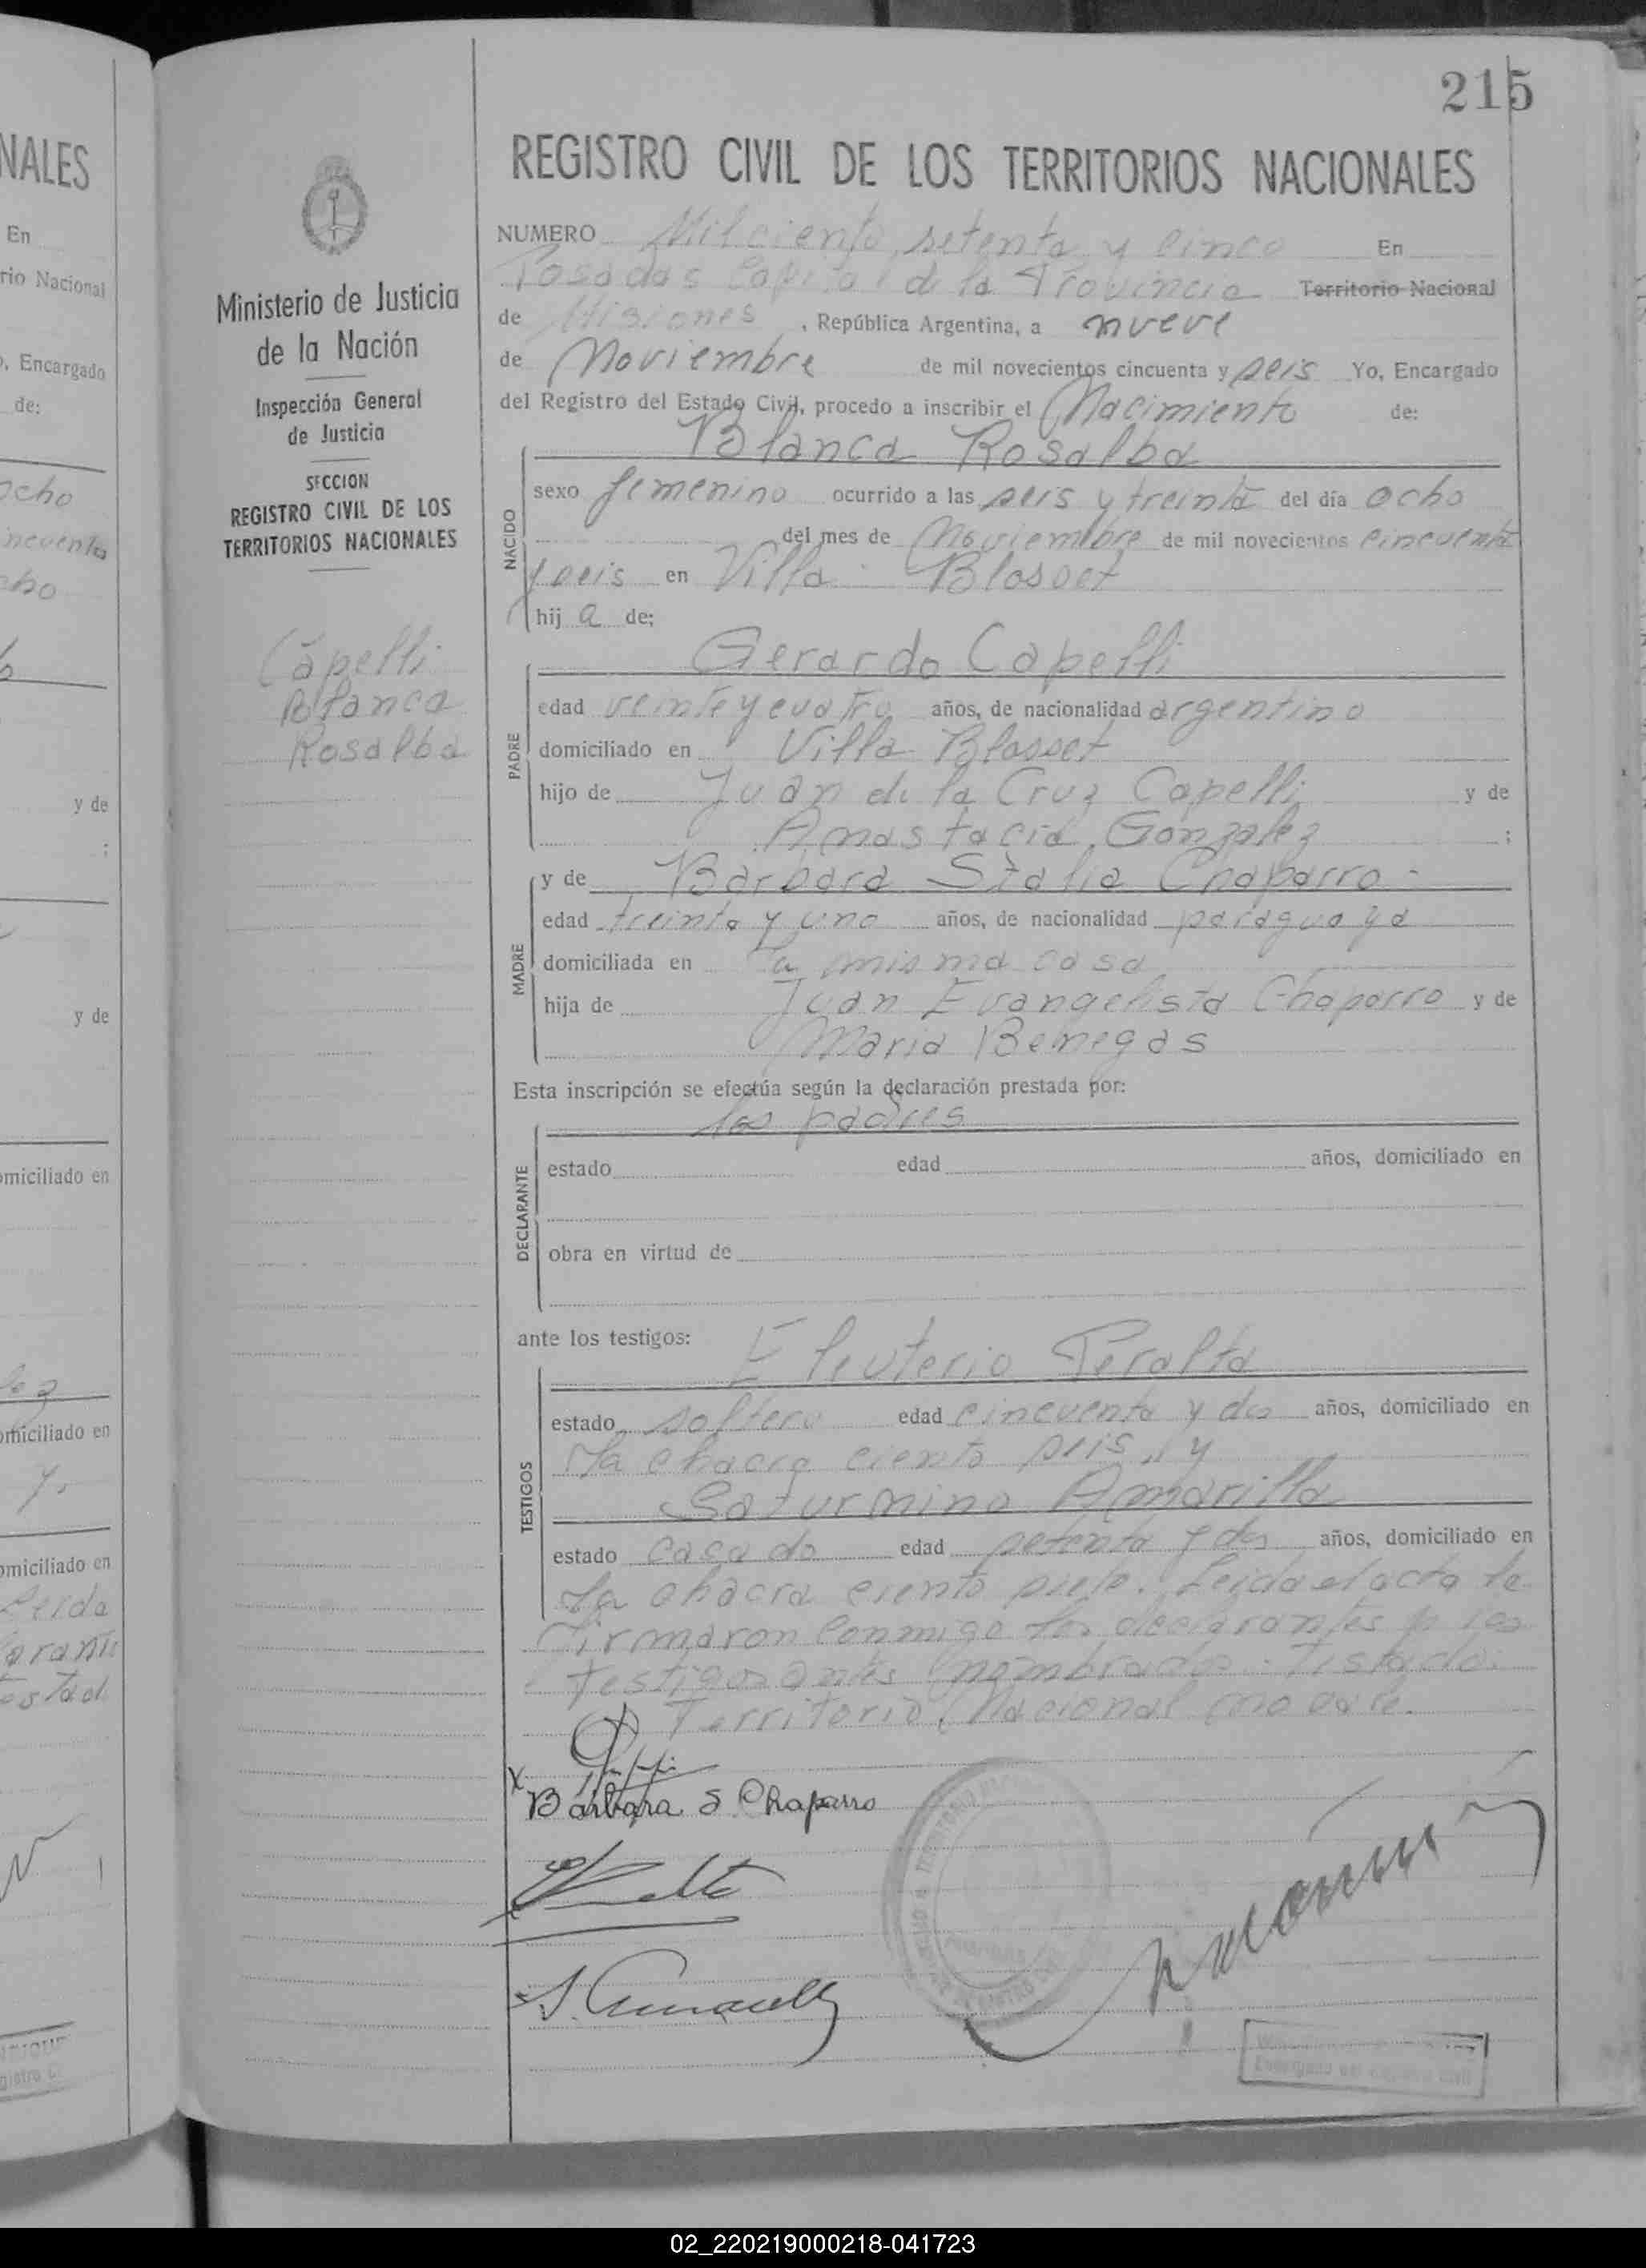 215
REGISTRO CIVIL DE LOS TERRITORIOS NACIONALES
Ministerio de Justicia
de la Nación
Inspección General
de Justicia
SECCION
REGISTRO CIVIL DE LOS
TERRITORIOS NACIONALES
Capelli
Blanca
Rosalba
NUMERO Mil ciento setenta y cinco En
Posadas Capital de la Provincia Territorio Nacional
de Misiones, República Argentina, a nueve
de Noviembre de mil novecientos cincuenta y seis Yo, Encargado
del Registro del Estado Civil, procedo a inscribir el Nacimiento de:
Blanca Rosalba
NACIDO
sexo femenino ocurrido a las seis y treinta del día ocho
del mes de Noviembre de mil novecientos cincuenta
y seis en Villa Blosset
hij a de;
Gerardo Capelli
PADRE
edad veinte y cuatro años, de nacionalidad argentino
domiciliado en Villa Blosset
hijo de Juan de la Cruz Capelli y de
Anastacia Gonzalez ;
MADRE
y de Barbara Stalia Chaparro -
edad treinta y uno años, de nacionalidad paraguaya
domiciliada en la misma casa
hija de Juan Evangelista Chaparro y de
Maria Benegas
Esta inscripción se efectúa según la declaración prestada por:
los padres
DECLARANTE
estado edad años, domiciliado en
obra en virtud de
ante los testigos: Eleuterio Peralta
TESTIGOS
estado soltero edad cincuenta y dos años, domiciliado en
la chacra ciento seis, y
Saturnino Amarilla
estado casado edad setenta y dos años, domiciliado en
la chacra ciento siete. Leida el acta la
firmaron conmigo los declarantes y los
testigos antes nombrados. Testado:
Territorio Nacional no vale.
Bárbara S. Chaparro
NALES
En
rio Nacional
o, Encargado
de:
ocho
incuenta
cho
y de
;
y de
omiciliado en
omiciliado en
y.
omiciliado en
Leida
02_220219000218-041723